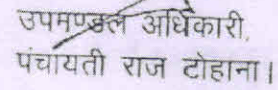 उपमण्डल अधिकारी,
पंचायती राज टोहाना।